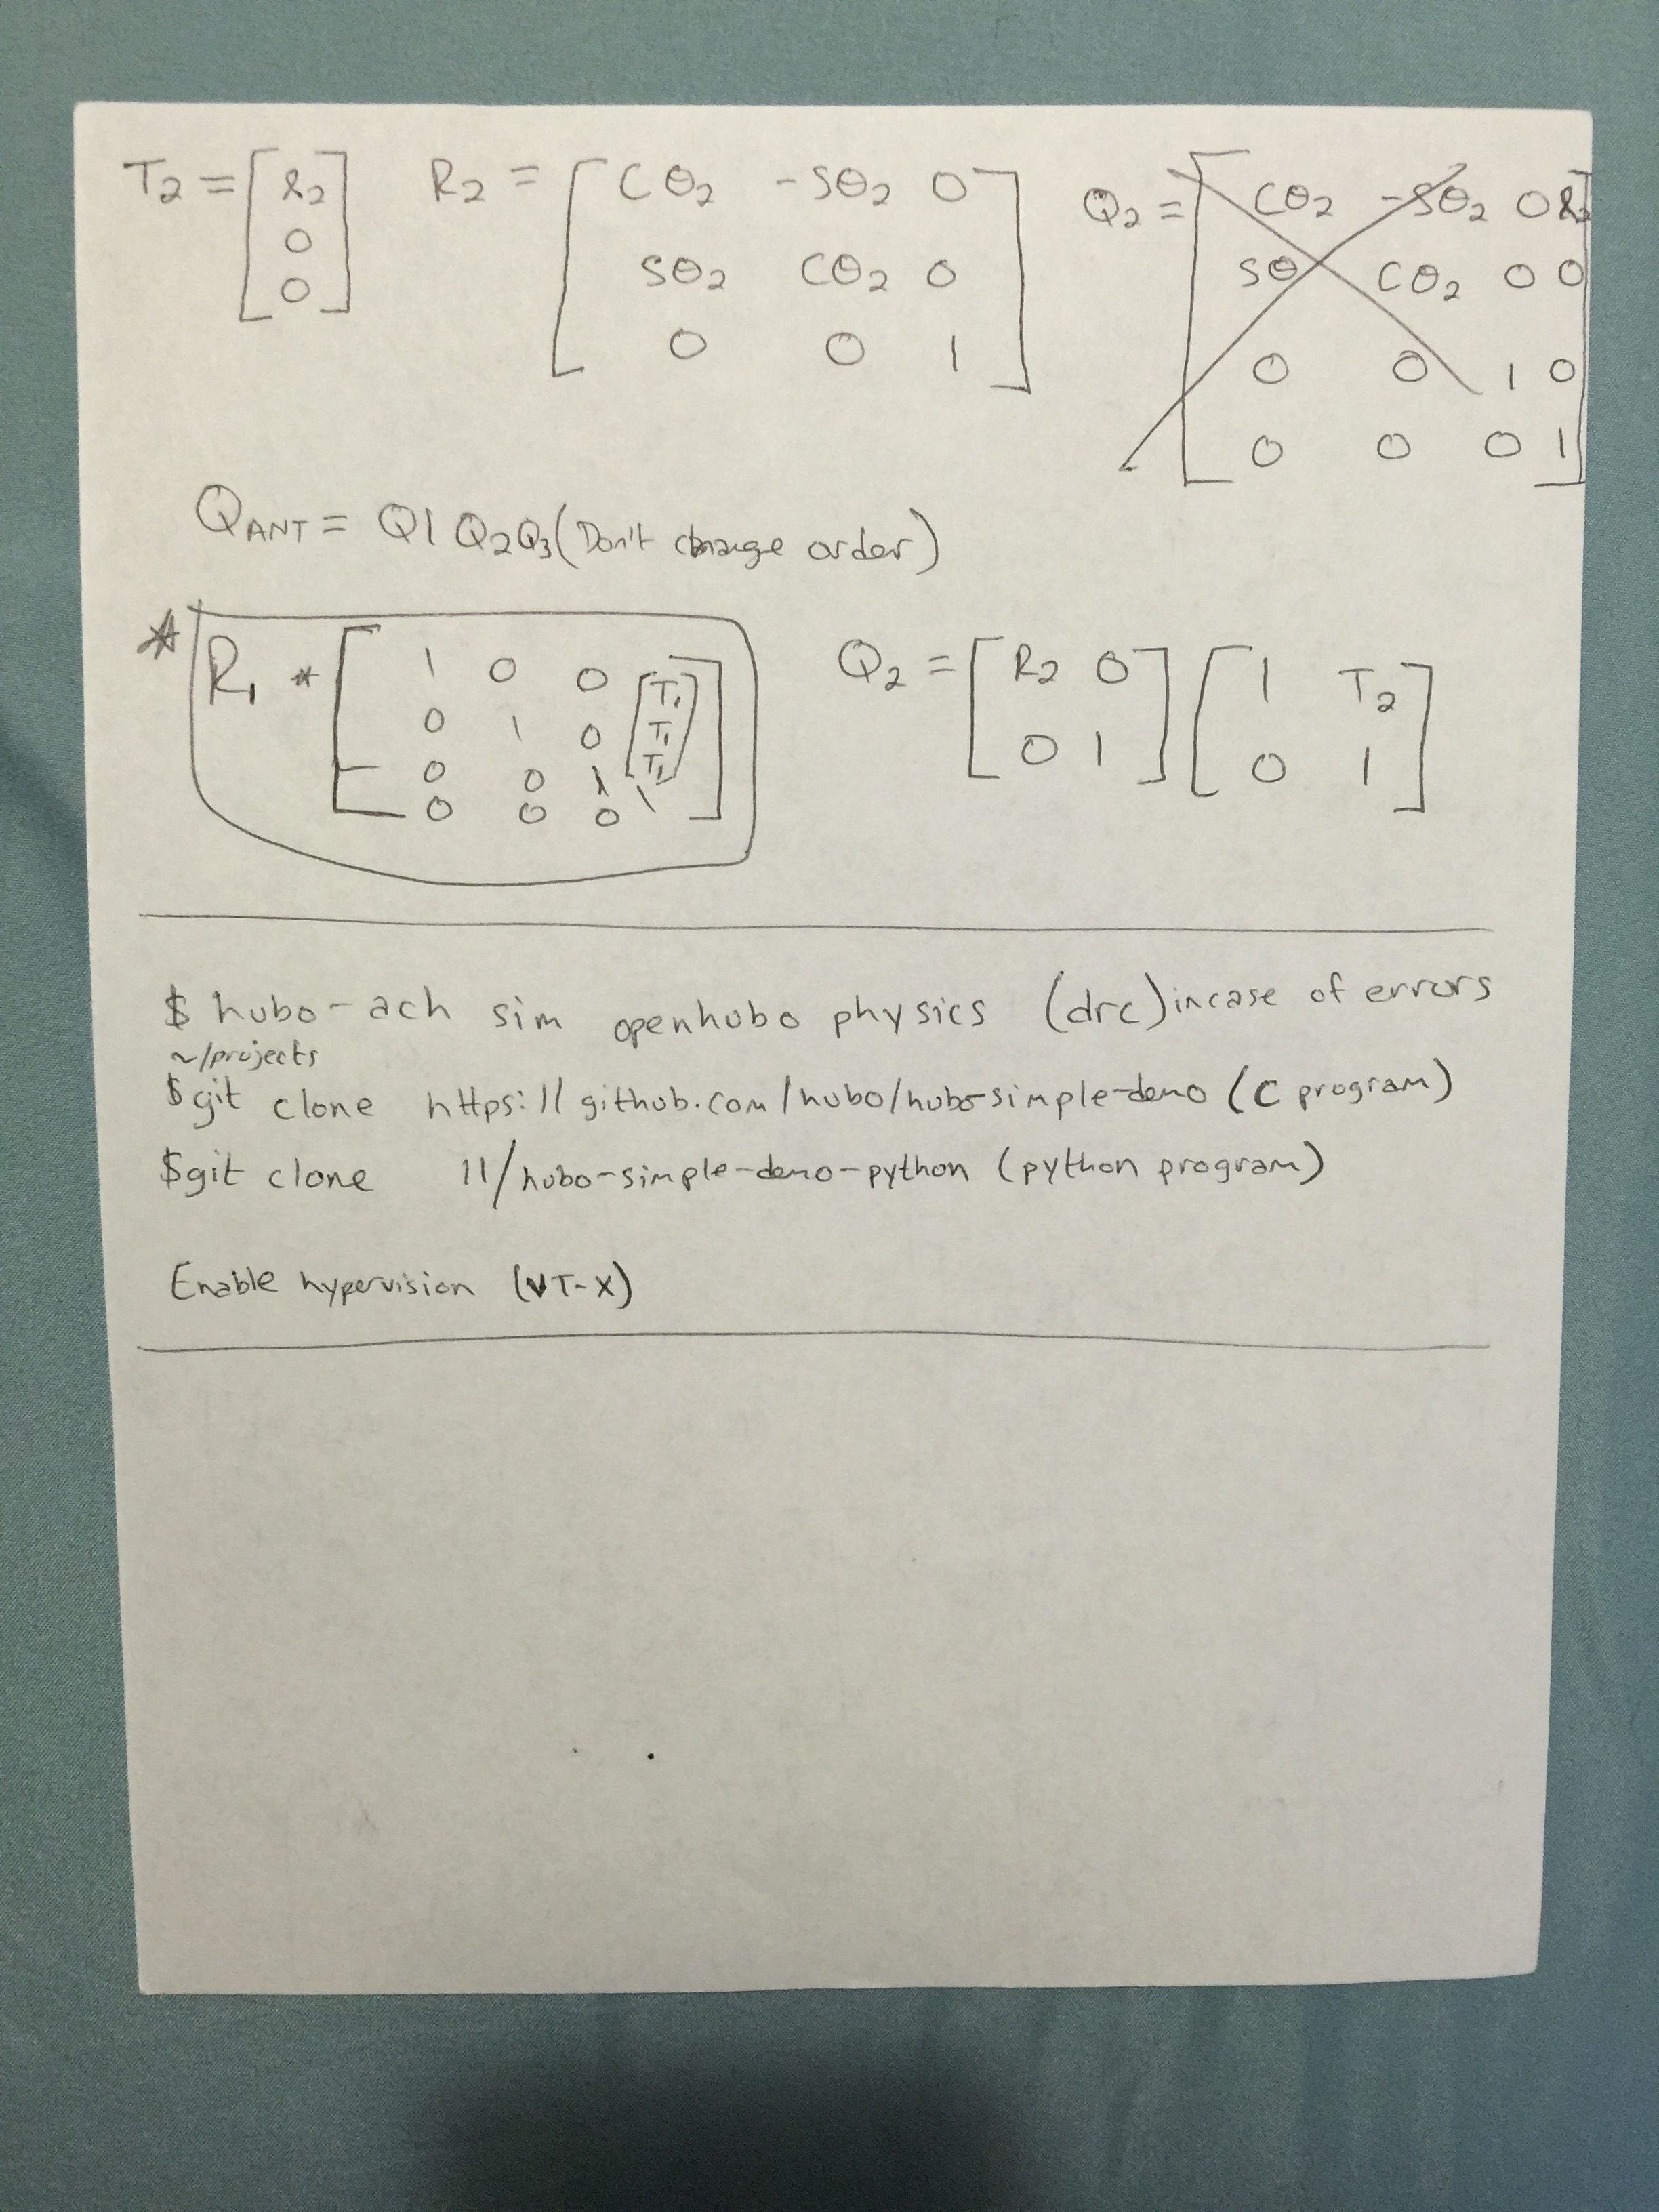 T2 = [ℓ2 0 0] R2 = [Cθ2 -Sθ2 0
Sθ2 Cθ2 0
0 0 1] Q2 = [Cθ2 -Sθ2 0 ℓ2
Sθ Cθ2 0 0
0 0 1 0
0 0 0 1]
QANT = Q1 Q2 Q3 (Don't change order)
* R1 * [1 0 0 [T1
0 1 0 T1
0 0 1 T1]
0 0 0 1]
Q2 = [R2 0
0 1] [1 T2
0 1]
$ hubo-ach sim openhubo physics (drc) incase of errors
~/projects
$git clone https://github.com/hubo/hubo-simple-demo (C program)
$git clone 11/hubo-simple-demo-python (python program)
Enable hypervision (VT-X)